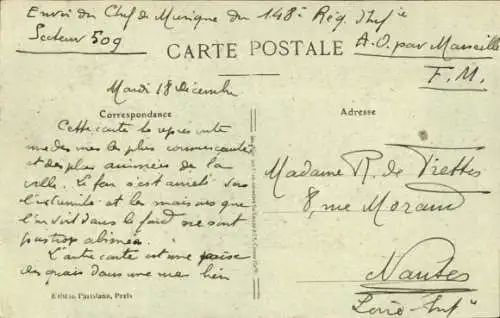 Envoi du Chef de Musique du 148e Rég. Inf ie
Secteur 509
CARTE POSTALE
A.O. par Marseille
F.M.
Mardi 18 Décembre
Correspondance
Cette carte te représente
une des rues les plus commerçantes
et des plus animées de la
ville. Le feu s'est arrêté sous
l'estamide et les maisons que
l'on voit dans le fond ne sont
pas trop abimées.
L'autre carte est une prise
des quais dans une rue bien
Edition Parisiana, Paris
Adresse
Madame R. de Trettes
8, rue Morand
Nantes
Loire-Infre